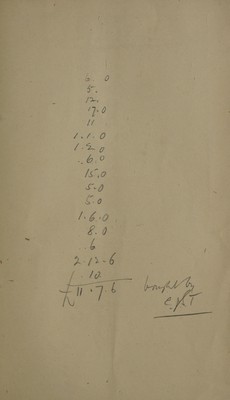 6. 0
8.
12.
17.0
11
1.1.0
1.2.0
.6.0
15.0
5.0
5.0
1.6.0
8.0
6
2.12.6
10
£11.7.6 bought by
C.J.T